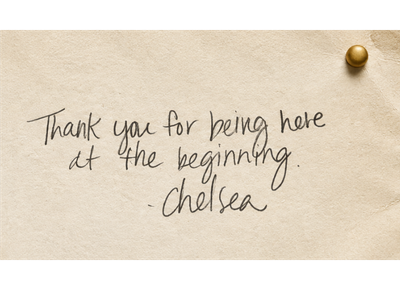 Thank you for being here
at the beginning.
- Chelsea